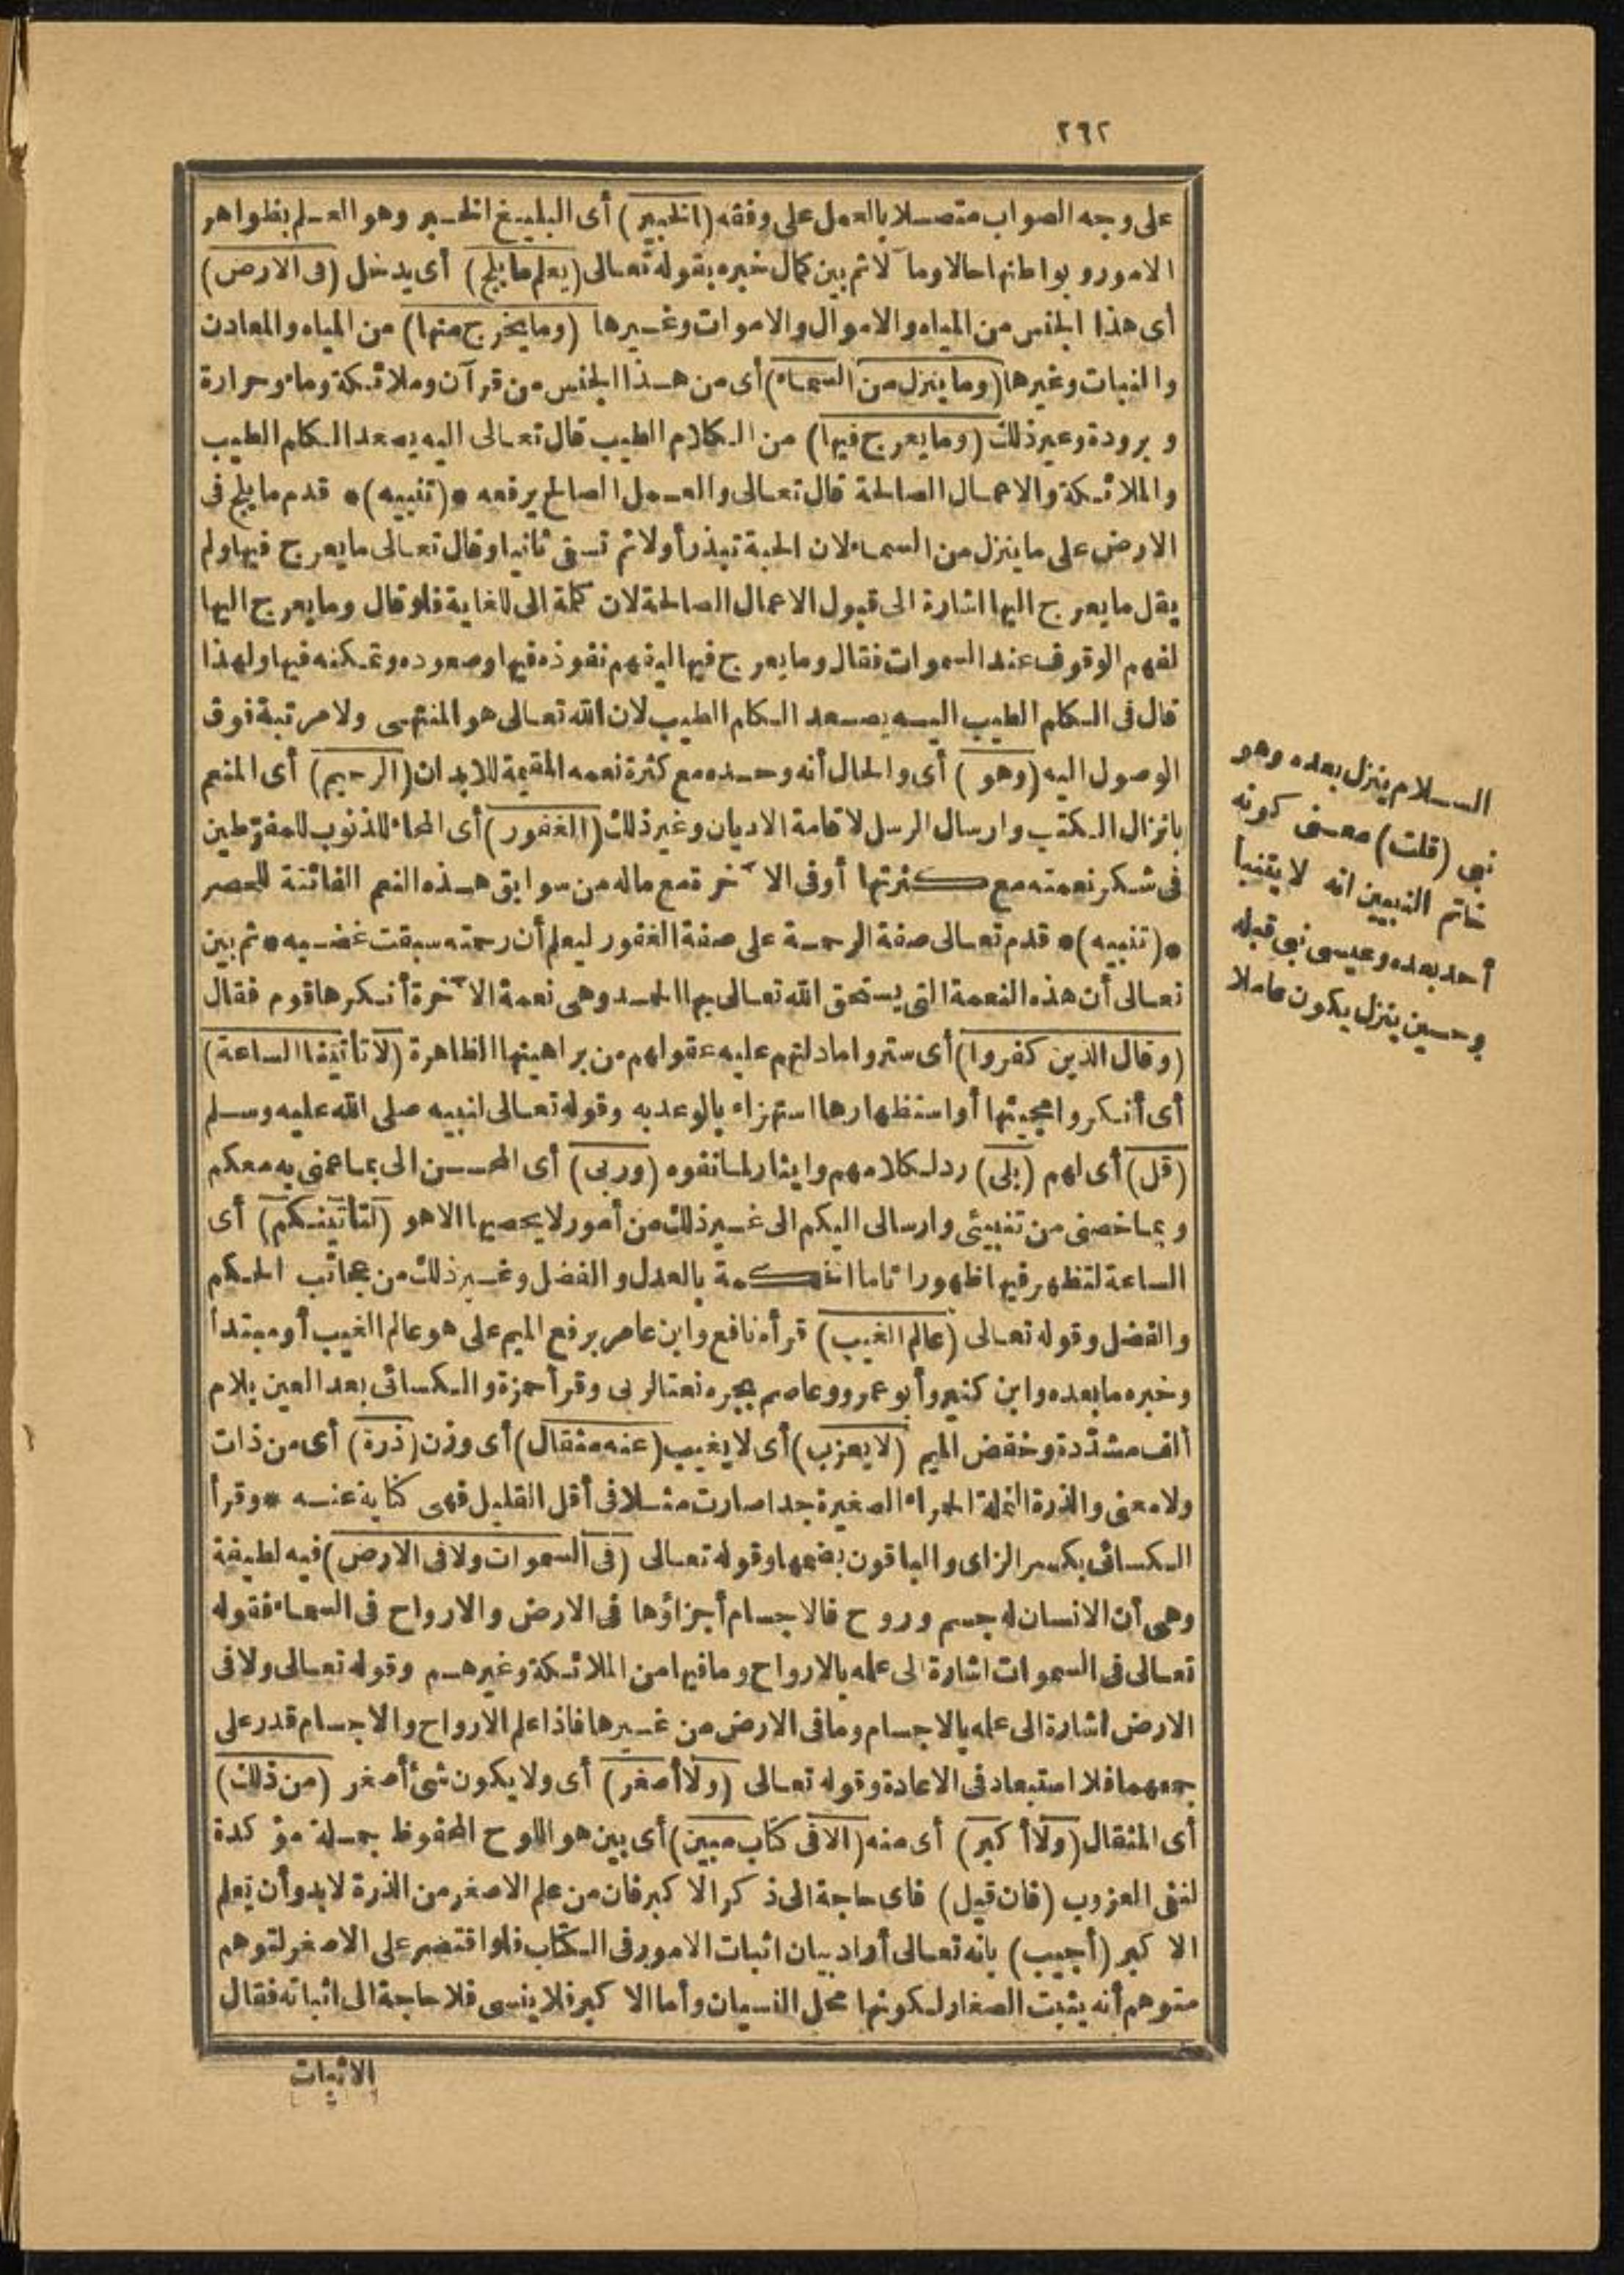 ٢٦٢
على وجه الصواب متصلا بالعمل على وفقه (الخبير) أى البليغ الخبر وهو العلم بظواهر
الامور وبواطنها حالا وما ٓلا ثم بين كمال خبره بقوله تعالى (يعلم ما يلج) أى يدخل (فى الارض)
أى هذا الجنس من المياه والاموال والاموات وغيرها (وما يخرج منها) من المياه والمعادن
والنبات وغيرها (وما ينزل من السماء) أى من هذا الجنس من قرآن وملائكة وماء وحرارة
وبرودة وغير ذلك (وما يعرج فيها) من الكلام الطيب قال تعالى اليه يصعد الكلم الطيب
والملائكة والاعمال الصالحة قال تعالى والعمل الصالح يرفعه *(تنبيه)* قدم ما يلج فى
الارض على ما ينزل من السماء لان الحبة تبذر أولا ثم تسقى ثانيا وقال تعالى ما يعرج فيها ولم
يقل ما يعرج اليها اشارة الى قبول الاعمال الصالحة لان كلمة الى للغاية فلو قال وما يعرج اليها
لفهم الوقوف عند السموات فقال وما يعرج فيها ليفهم نفوذه فيها وصعوده وتمكنه فيها ولهذا
قال فى الكلم الطيب اليه يصعد الكلم الطيب لان الله تعالى هو المنتهى ولا مرتبة فوق
الوصول اليه (وهو) أى والحال أنه وحده مع كثرة نعمه المقيمة للابدان (الرحيم) أى المنعم
بانزال الكتب وارسال الرسل لاقامة الاديان وغير ذلك (الغفور) أى المحاء للذنوب للمفرّطين
فى شكر نعمته مع كثرتها أو فى الآخرة مع ماله من سوابق هذه النعم الفائتة للحصر
*(تنبيه)* قدم تعالى صفة الرحمة على صفة الغفور ليعلم أن رحمته سبقت غضبه * ثم بين
تعالى أن هذه النعمة التى يستحق الله تعالى بها الحمد وهى نعمة الآخرة أنكرها قوم فقال
(وقال الذين كفروا) أى ستروا ما دلتهم عليه عقولهم من براهينها الظاهرة (لا تأتينا الساعة)
أى أنكروا مجيئها أو استظهارها استهزاء بالوعد به وقوله تعالى لنبيه صلى الله عليه وسلم
(قل) أى لهم (بلى) رد لكلامهم وايثار لما نفوه (وربى) أى المحسن الى بما عمنى به معكم
وبما خصنى من تنبيئى وارسالى اليكم الى غير ذلك من أمور لا يحصيها الا هو (لتأتينكم) أى
الساعة لتظهر فيها ظهورا تاما الحكمة بالعدل والفضل وغير ذلك من عجائب الحكم
والفضل وقوله تعالى (عالم الغيب) قرأه نافع وابن عامر برفع الميم على هو عالم الغيب أو مبتدأ
وخبره ما بعده وابن كثير وأبو عمرو وعاصم بجره نعتا لربى وقرأ حمزة والكسائى بعد العين بلام
ألف مشدّدة وخفض الميم (لا يعزب) أى لا يغيب (عنه مثقال) أى وزن (ذرة) أى من ذات
ولا معنى والذرة النملة الحمراء الصغيرة جدا صارت مثلا فى أقل القليل فهى كناية عنه * وقرأ
الكسائى بكسر الزاى والباقون بضمها وقوله تعالى (فى السموات ولا فى الارض) فيه لطيفة
وهى أن الانسان له جسم وروح فالاجسام أجزاؤها فى الارض والارواح فى السماء فقوله
تعالى فى السموات اشارة الى علمه بالارواح وما فيها من الملائكة وغيرهم وقوله تعالى ولا فى
الارض اشارة الى علمه بالاجسام وما فى الارض من غيرها فاذا علم الارواح والاجسام قدر على
جمعهما فلا استبعاد فى الاعادة وقوله تعالى (ولا أصغر) أى ولا يكون شئ أصغر (من ذلك)
أى المثقال (ولا أكبر) أى منه (الا فى كتاب مبين) أى بين هو اللوح المحفوظ جملة مؤكدة
لنفى العزوب (فان قيل) فاى حاجة الى ذكر الاكبر فان من علم الاصغر من الذرة لابد وأن يعلم
الاكبر (أجيب) بانه تعالى أراد بيان اثبات الامور فى الكتاب فلو اقتصر على الاصغر لتوهم
متوهم أنه يثبت الصغار لكونها محل النسيان وأما الاكبر فلا ينسى فلا حاجة الى اثباته فقال
الاثبات
السلام ينزل بعده وهو
نبى (قلت) معنى كونه
خاتم النبيين انه لا يتنبا
أحد بعده وعيسى نبى قبله
وحسين ينزل يكون عاملا